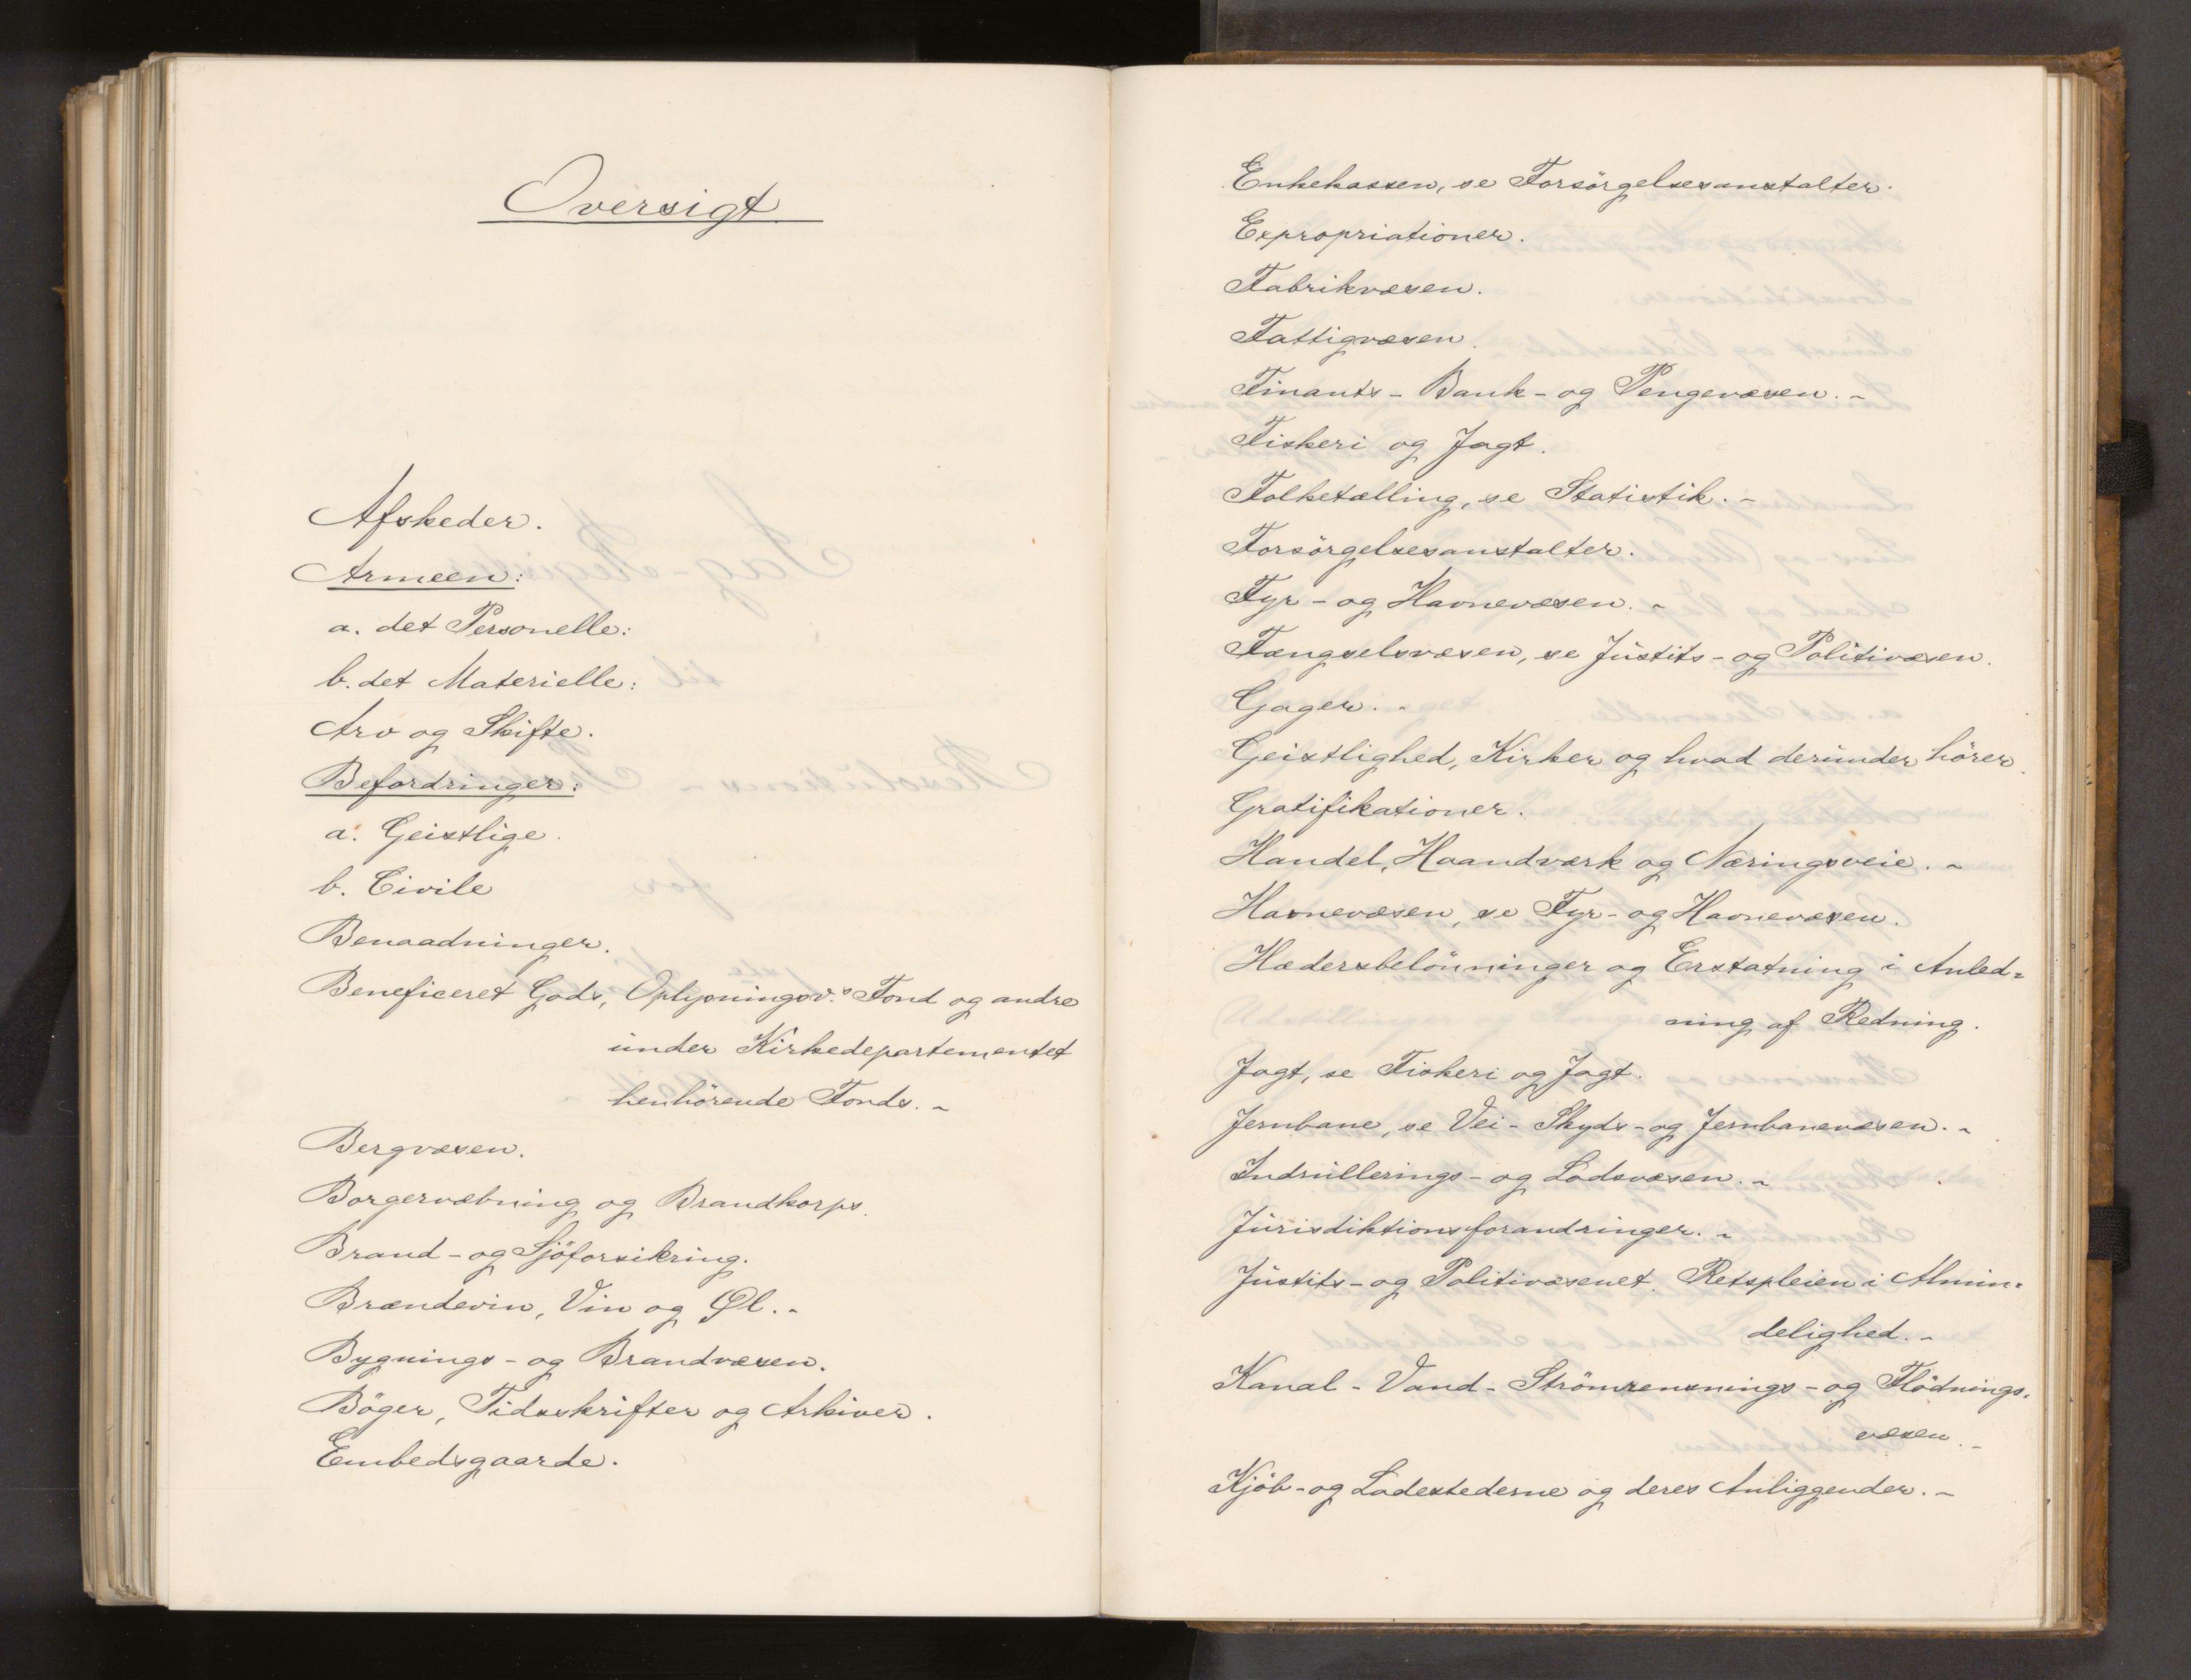 Oversigt
Afskeder.
Armeen:
a. det Personelle:
b. det Materielle:
Arv og Skifte.
Befordringer:
a. Geistlige.
b. Civile
Benaadninger.
Beneficeret Gods, Oplysningsv.s Fond og andre
under Kirkedepartementet
henhörende Fonds. -
Bergvæsen.
Borgervæbning og Brandkorps.
Brand- og Sjöforsikring.
Brændevin, Vin og Øl. -
Bygnings- og Brandvæsen.
Böger, Tidsskrifter og Arkiver.
Embedsgaarde.
Enkekassen, se Forsörgelsesanstalter.
Expropriationer.
Fabrikvæsen.
Fattigvæsen.
Finants- Bank- og Pengevæsen. -
Fiskeri og Jagt.
Folketælling, se Statistik. -
Forsörgelsesanstalter.
Fyr- og Havnevæsen. -
Fængselsvæsen, se Justits- og Politivæsen.
Gager. -
Geistlighed, Kirker og hvad derunder hörer.
Gratifikationer.
Handel, Haandværk og Næringsveie. -
Havnevæsen, se Fyr- og Havnevæsen.
Hædersbelönninger og Erstatning i Anled=
ning af Redning.
Jagt, se Fiskeri og Jagt.
Jernbane, se Vei- Skyds- og Jernbanevæsen. -
Indrullerings- og Lodsvæsen. -
Jurisdiktionsforandringer. -
Justits- og Politivæsenet. Retspleien i Almin=
delighed. -
Kanal- Vand- Strömrensnings- og Flödnings=
væsen. -
Kjöb- og Ladestederne og deres Anliggender. -